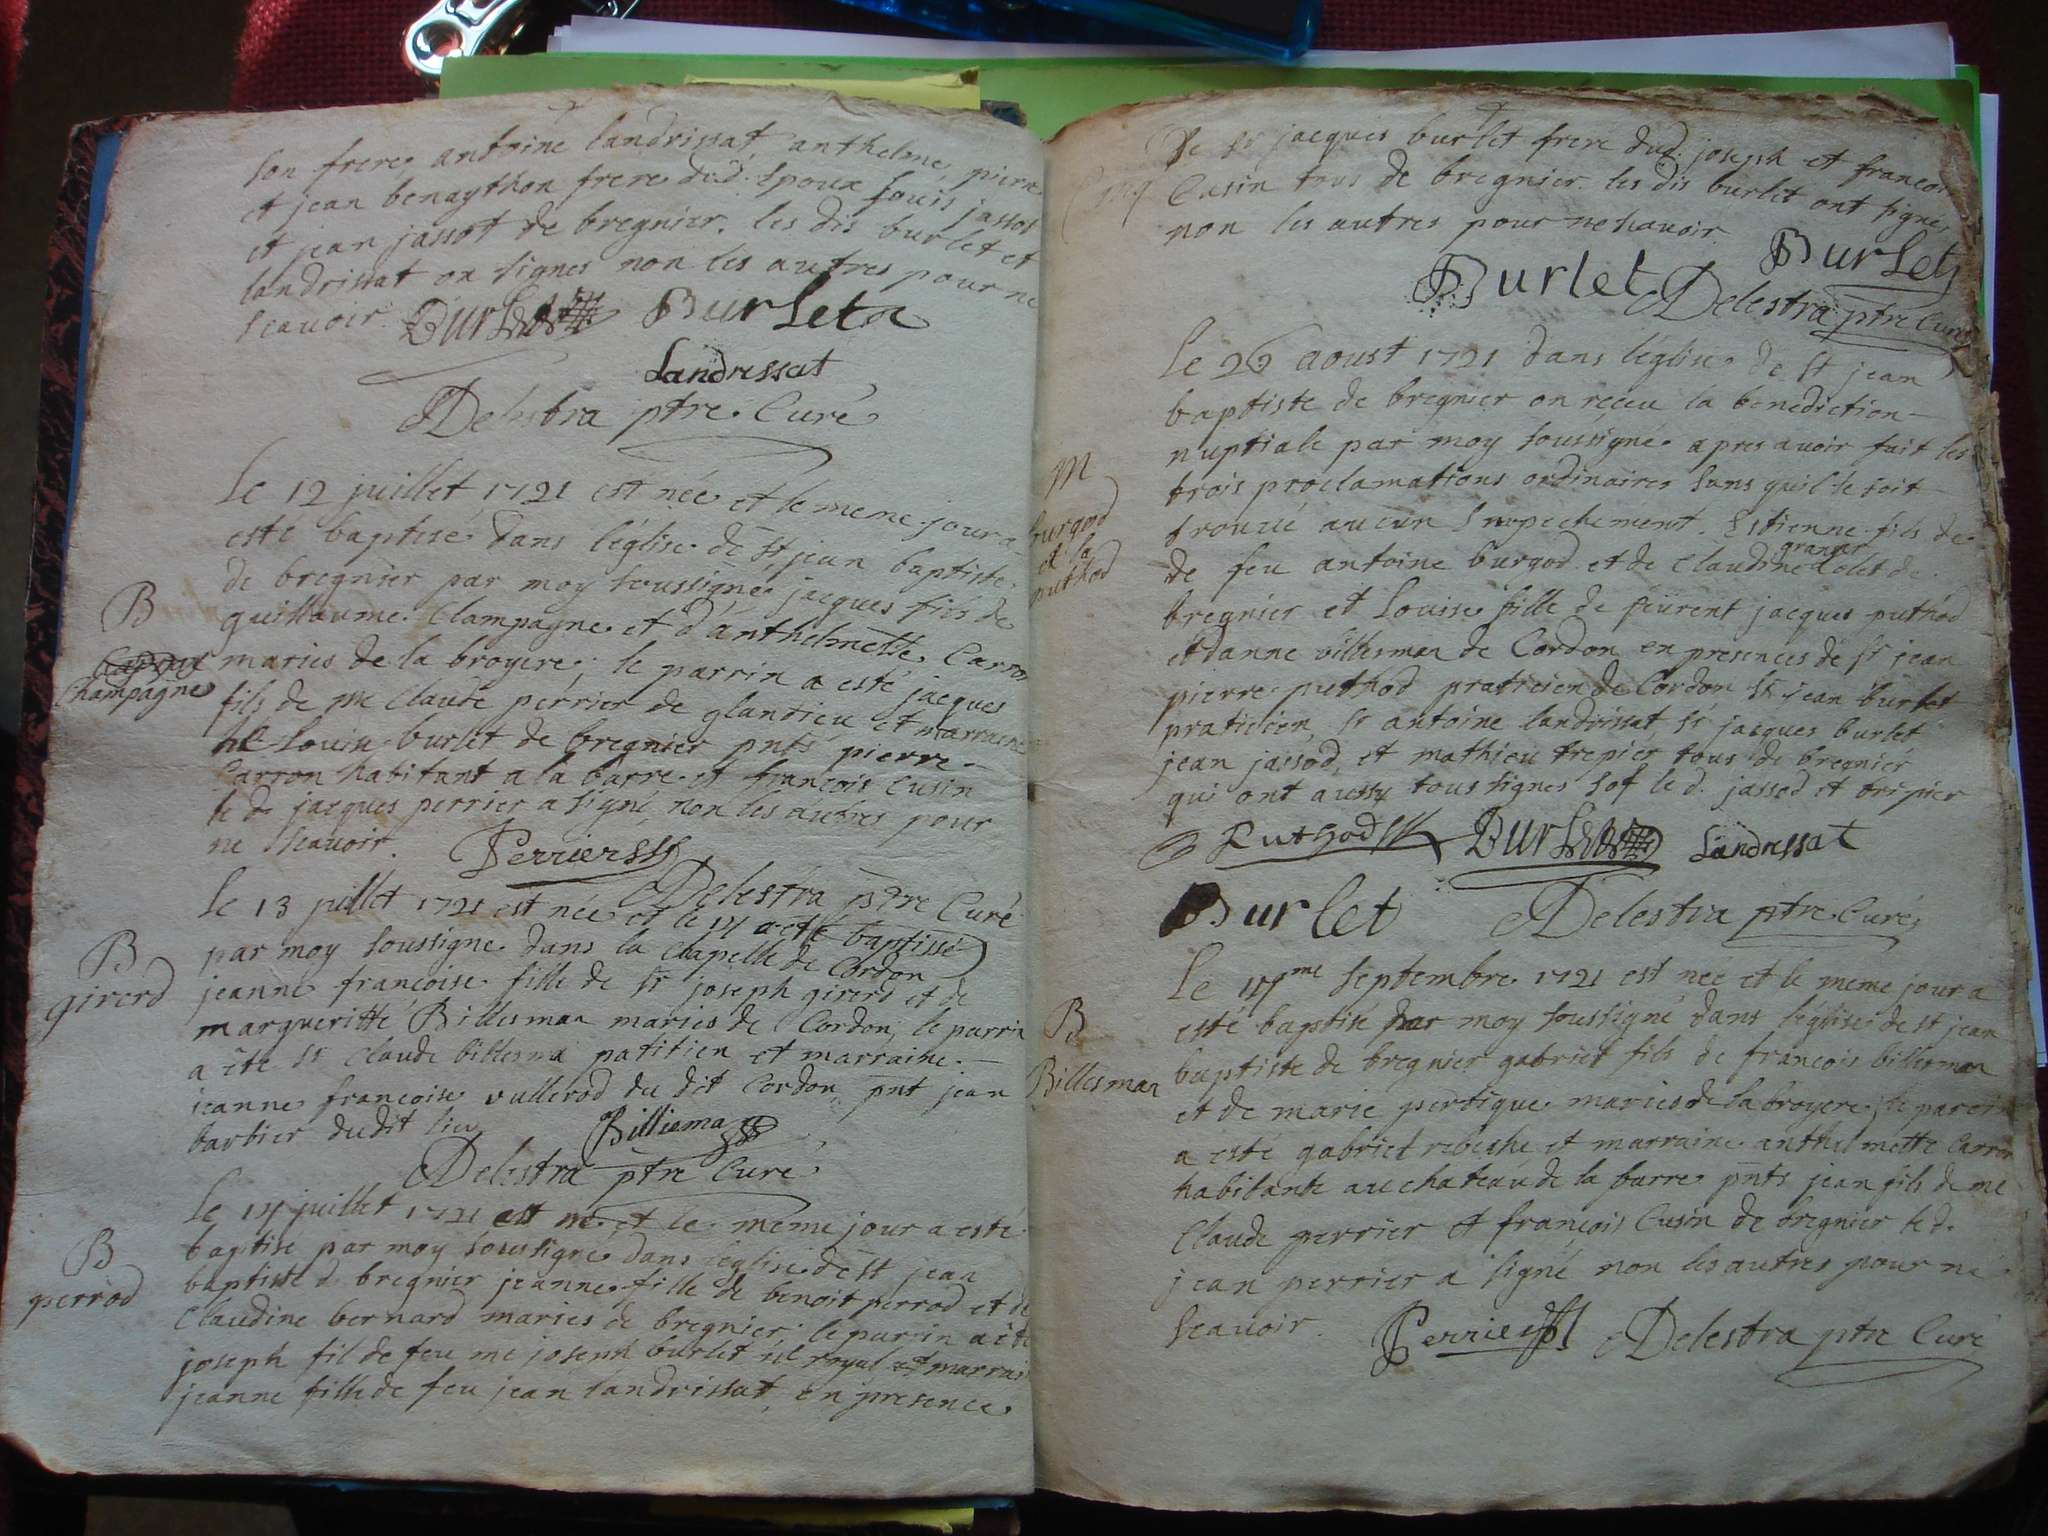 son frere, antoine landrissat anthelme, pierre
et jean benaython frere dud. epoux Louis jassot
et jean jassot de bregnier. les dis burlet et
landrissat on signes non les autres pour ne
scavoir. Burlet Burlet
Landrissat
Delestra ptre Curé
Le 12 juillet 1721 est née et le meme jour a
esté baptisé dans l'église de st jean baptiste
de bregnier par moy soussigné jacques fils de
B
guillaume Champagne et d'anthelmette Carron
Champagne
maries de la broyere; le parrin a esté jacques
fils de me Claude perrier de glandieu et marraine
Louise burlet de bregnier pnts pierre
Carron habitant a la barre et françois Cusin
le d. jacques perrier a signé non les autres pour
ne scavoir. Perrier
Delestra ptre Curé
Le 13 juillet 1721 est née et le 14 a esté baptisée
B
girerd
par moy soussigne dans la chapelle de Cordon
jeanne françoise fille de sr joseph girerd et de
margueritte Billesman maries de Cordon, le parrin
a été sr Claude billesma patitien et marraine
jeanne françoise vullerod du dit Cordon, pnt jean
barbier dudit lieu Billiema
Delestra ptre Curé
Le 14 juillet 1721 est né et le meme jour a esté
B
perrod
baptise par moy soussigné dans l'église de st jean
baptiste d bregnier jeanne fille de benoit perrod et de
Claudine bernard maries de bregnier; le parrin a été
joseph fil de feu me joseph burlet royal et marrai
jeanne fille de feu jean landrissat, en presence
De sr jacques burlet frere dud. joseph et françois
Cusin tous de bregnier. les dis burlet ont signé
non les autres pour ne scavoir.
Burlet Burlet
Delestra ptre Curé
Le 26 aoust 1721 dans l'église de st jean
baptiste de bregnier on receu la benediction
nuptiale par moy soussigné apres avoir fait les
M
burgod
et la
puthod
trois proclamations ordinaires sans quil se soit
trouué aucun Impechement. Estienne fils de
de feu antoine burgod et de Claudine granier
bregnier et Louise fille de jacques puthod
et danne villesman de Cordon en presences de sr jean
pierre puthod praticien de Cordon sr jean burlet
praticien, sr antoine landrissat, sr jacques burlet
jean jassod, et mathieu trepier tous de bregnier
qui ont aussy tous signes sof le d. jassod et trepier
Puthod Burlet Landrissat
Burlet Delestra ptre Curé
Le 14me septembre 1721 est née et le meme jour a
B
Billesman
esté baptisé par moy soussigné dans l'église de st jean
baptiste de bregnier gabriel fils de françois billesman
et de marie perdigue maries de la broyere, le parrin
a esté gabriel rebeshe et marraine anthelmette Carron
habitante au chateau de la barre pnts jean fils de me
Claude perrier et françois Cusin de bregnier le d.
jean perrier a signé non les autres pour ne
scavoir. Perrier Delestra ptre Curé